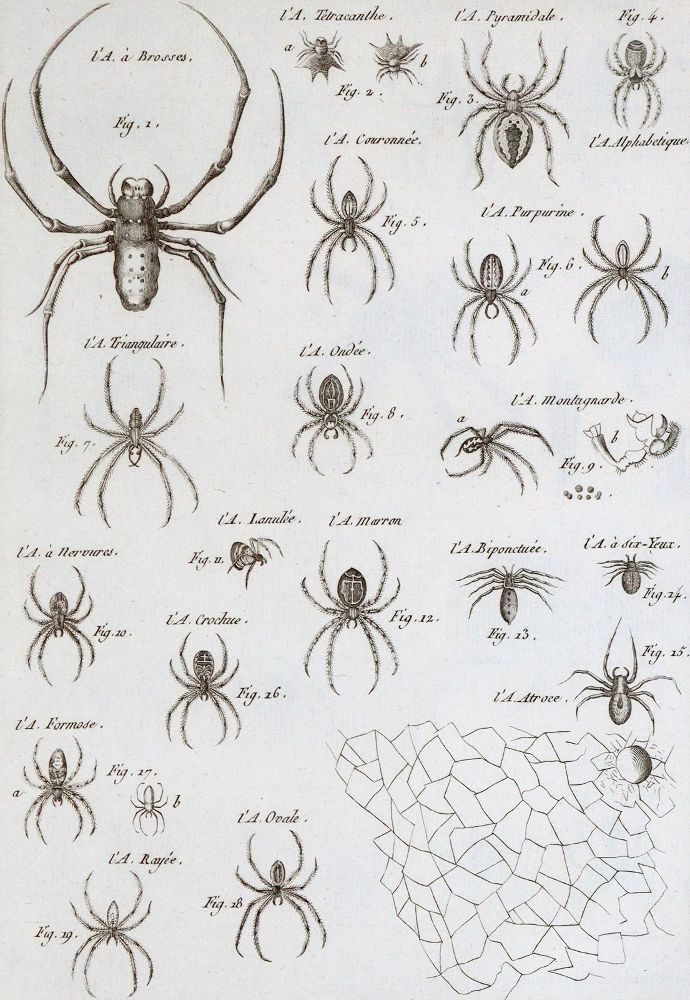 l'A. à Brosses.
Fig. 1.
l'A. Tétracanthe.
a
b
Fig. 2.
l'A. Pyramidale.
Fig. 3.
Fig. 4.
l'A. Alphabetique.
l'A. Couronnée.
Fig. 5.
l'A. Purpurine.
Fig. 6.
a
b
l'A. Triangulaire.
Fig. 7.
l'A. Ondée.
Fig. 8.
l'A. Montagnarde.
a
b
Fig. 9.
l'A. à Nervures.
Fig. 10.
l'A. Lanulée.
Fig. 11.
l'A. Marron
Fig. 12.
l'A. Biponctuée.
Fig. 13.
l'A. à Six-Yeux.
Fig. 14.
Fig. 15.
l'A. Atroce.
l'A. Crochue.
Fig. 16.
l'A. Formose.
Fig. 17.
a
b
l'A. Ovale.
Fig. 18
l'A. Rayée.
Fig. 19.